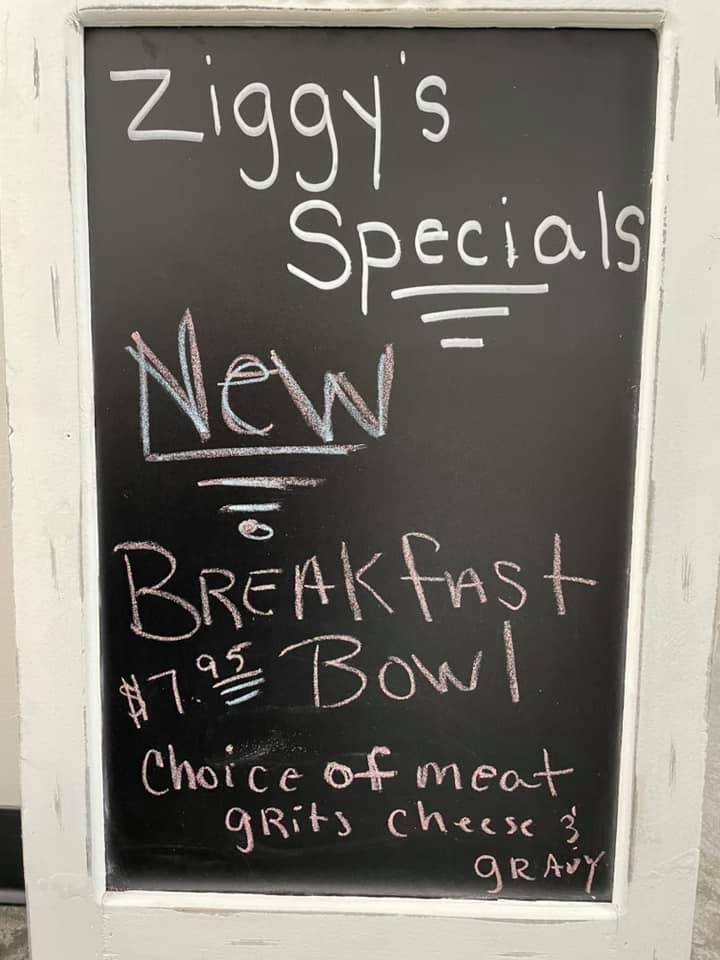 Ziggy's
Specials
New
BREAKfAst
$7.95 Bowl
Choice of meat
gRits cheese &
gRAvy